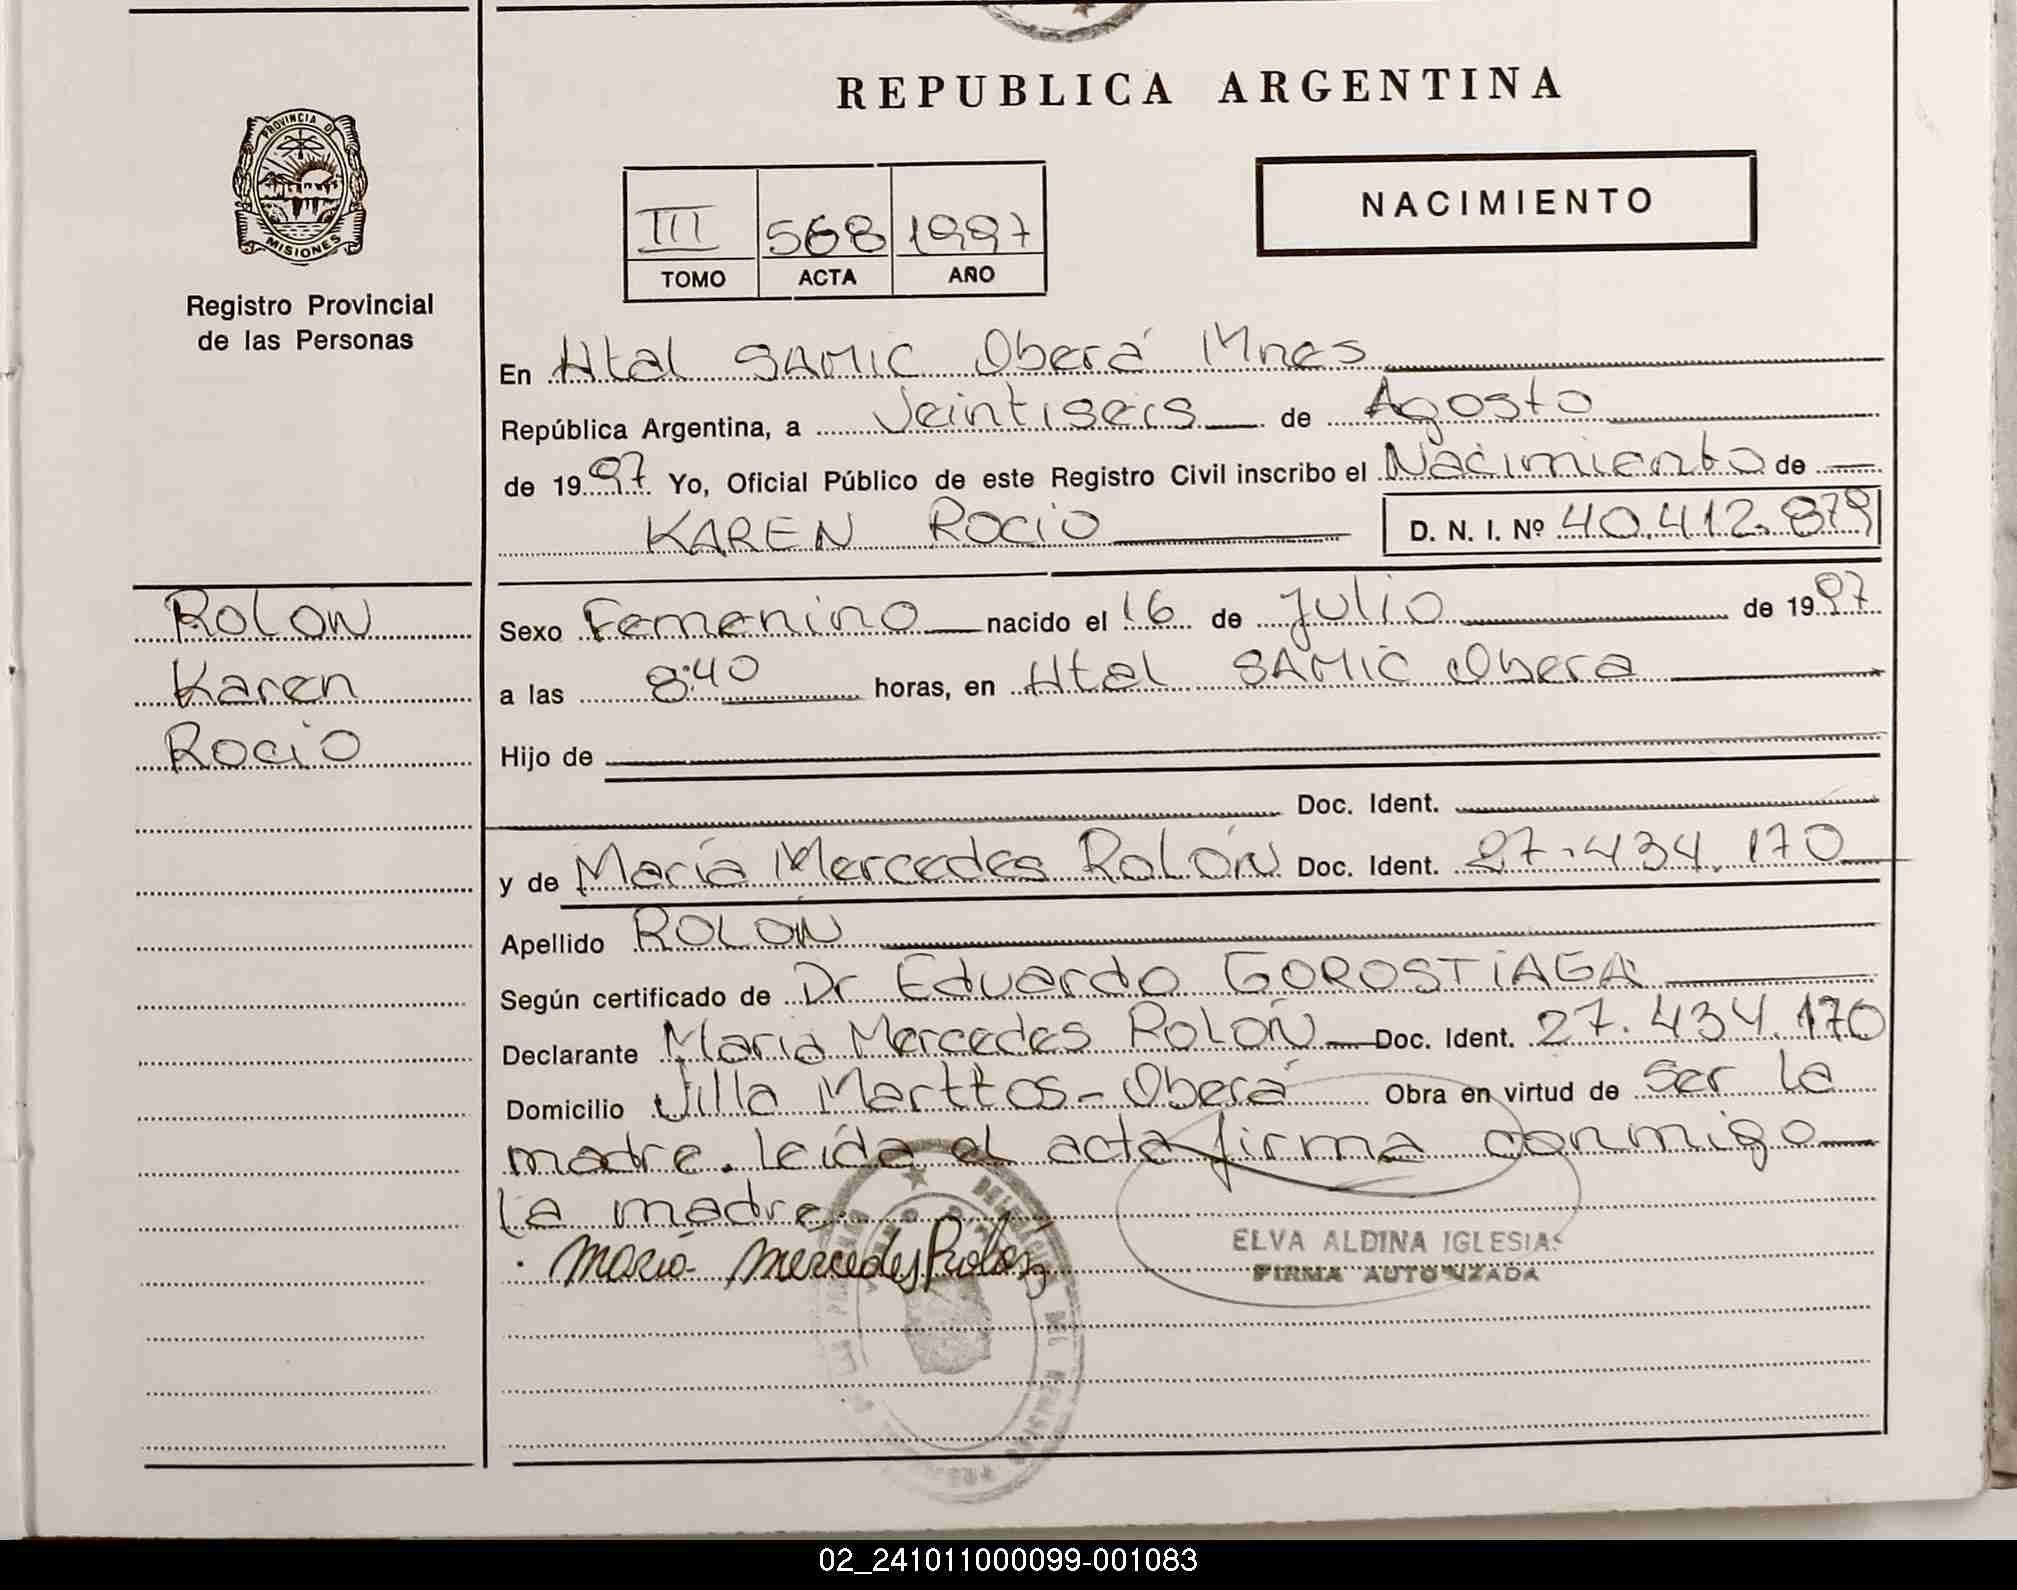 REPUBLICA ARGENTINA
PROVINCIA DE
MISIONES
Registro Provincial
de las Personas
NACIMIENTO
III 568 1997
TOMO ACTA AÑO
En Htal SAMIC Oberá Mnes
República Argentina, a Veintiseis de Agosto
de 1997 Yo, Oficial Público de este Registro Civil inscribo el Nacimiento de
KAREN ROCIO D. N. I. Nº 40.412.879
Rolon
Karen
Rocio
Sexo Femenino nacido el 16 de Julio de 1997
a las 8:40 horas, en Htal SAMIC Obera
Hijo de
Doc. Ident.
y de María Mercedes Rolón Doc. Ident. 27.434.170
Apellido ROLON
Según certificado de Dr Eduardo GOROSTIAGA
Declarante Maria Mercedes Rolón Doc. Ident. 27.434.170
Domicilio Villa Marttos - Oberá Obra en virtud de ser la
madre. leída el acta firma conmigo
la madre.
Maria Mercedes Rolon
ELVA ALDINA IGLESIAS
FIRMA AUTORIZADA
02_241011000099-001083